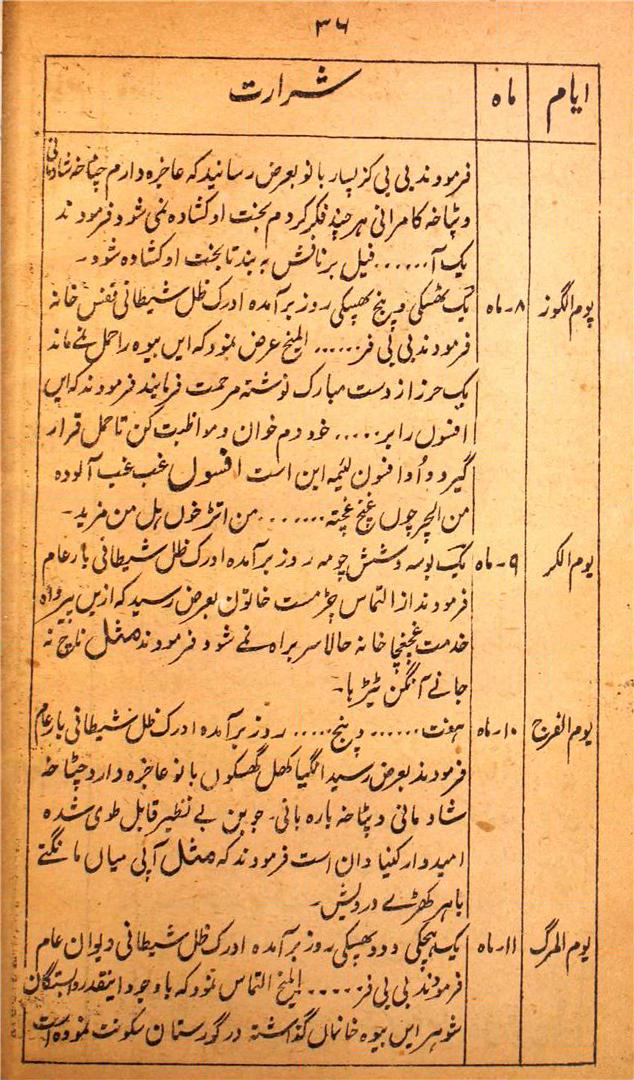 ۳۶
ایام ماه شرارت
فرمودند بی بی کز پسار بانو بعرض رسانید که عاجزه دارم چٹاخه شادمانی
و پٹاخه کامرانی هر چند فکر کردم بخت او کشاده نمی شود فرمودند
یک آ...... فیل بر نافش به بند تا بخت او کشاده شود۔
یوم الگوز ۸۔ماه یک ٹھسکی و پنج پھسکی روز برآمده ادرک ظل شیطانی قفس خانه
فرمودند بی بی فر...... المیخ عرض نمود که ایں بیوه را حمل نمے ماند
یک حرز از دست مبارک نوشته مرحمت فرمایند فرمودند که ایں
افسوں را بر..... خود دم خوان و مواظبت کن تا حمل قرار
گیرد و اُو افسون لئیمه این است افسوں غب غب آلوده
من الچر چوں غچغچته....... من اتڑخوں ہل من مزید۔
یوم الکر ۹۔ماه یک بوسه و شش چومه روز برآمده ادرک ظل شیطانی بار عام
فرمودند از التماس چڑمست خاتون بعرض رسید که ازیں پیرواه
خدمت غچغچا خانه حالا سربراه نمے شود فرمودند مثل ناچ نه
جانے آنگن ٹیڑھا۔
یوم الفرج ۱۰۔ماه ہفت...... و پنج..... روز برآمده ادرک ظل شیطانی بار عام
فرمودند بعرض رسید انگیا کھل گھسکوں بانو عاجزه دارد چٹاخه
شادمانی و پٹاخه باره بانی۔ جوبن بے نظیر قابل طوی شده
امیدوار کنیادان است فرمودند که مثل آپی میاں مانگتے
باہر کھڑے درویش۔
یوم المرگ ۱۱۔ماه یک ہچکی و دو پھسکی روز برآمده ادرک ظل شیطانی دیوان عام
فرمودند بی بی فر...... المیخ التماس نمود که باوجود اینقدر وابستگان
شوہر ایں بیوه خانماں گذاشته در گورستان سکونت نموده است